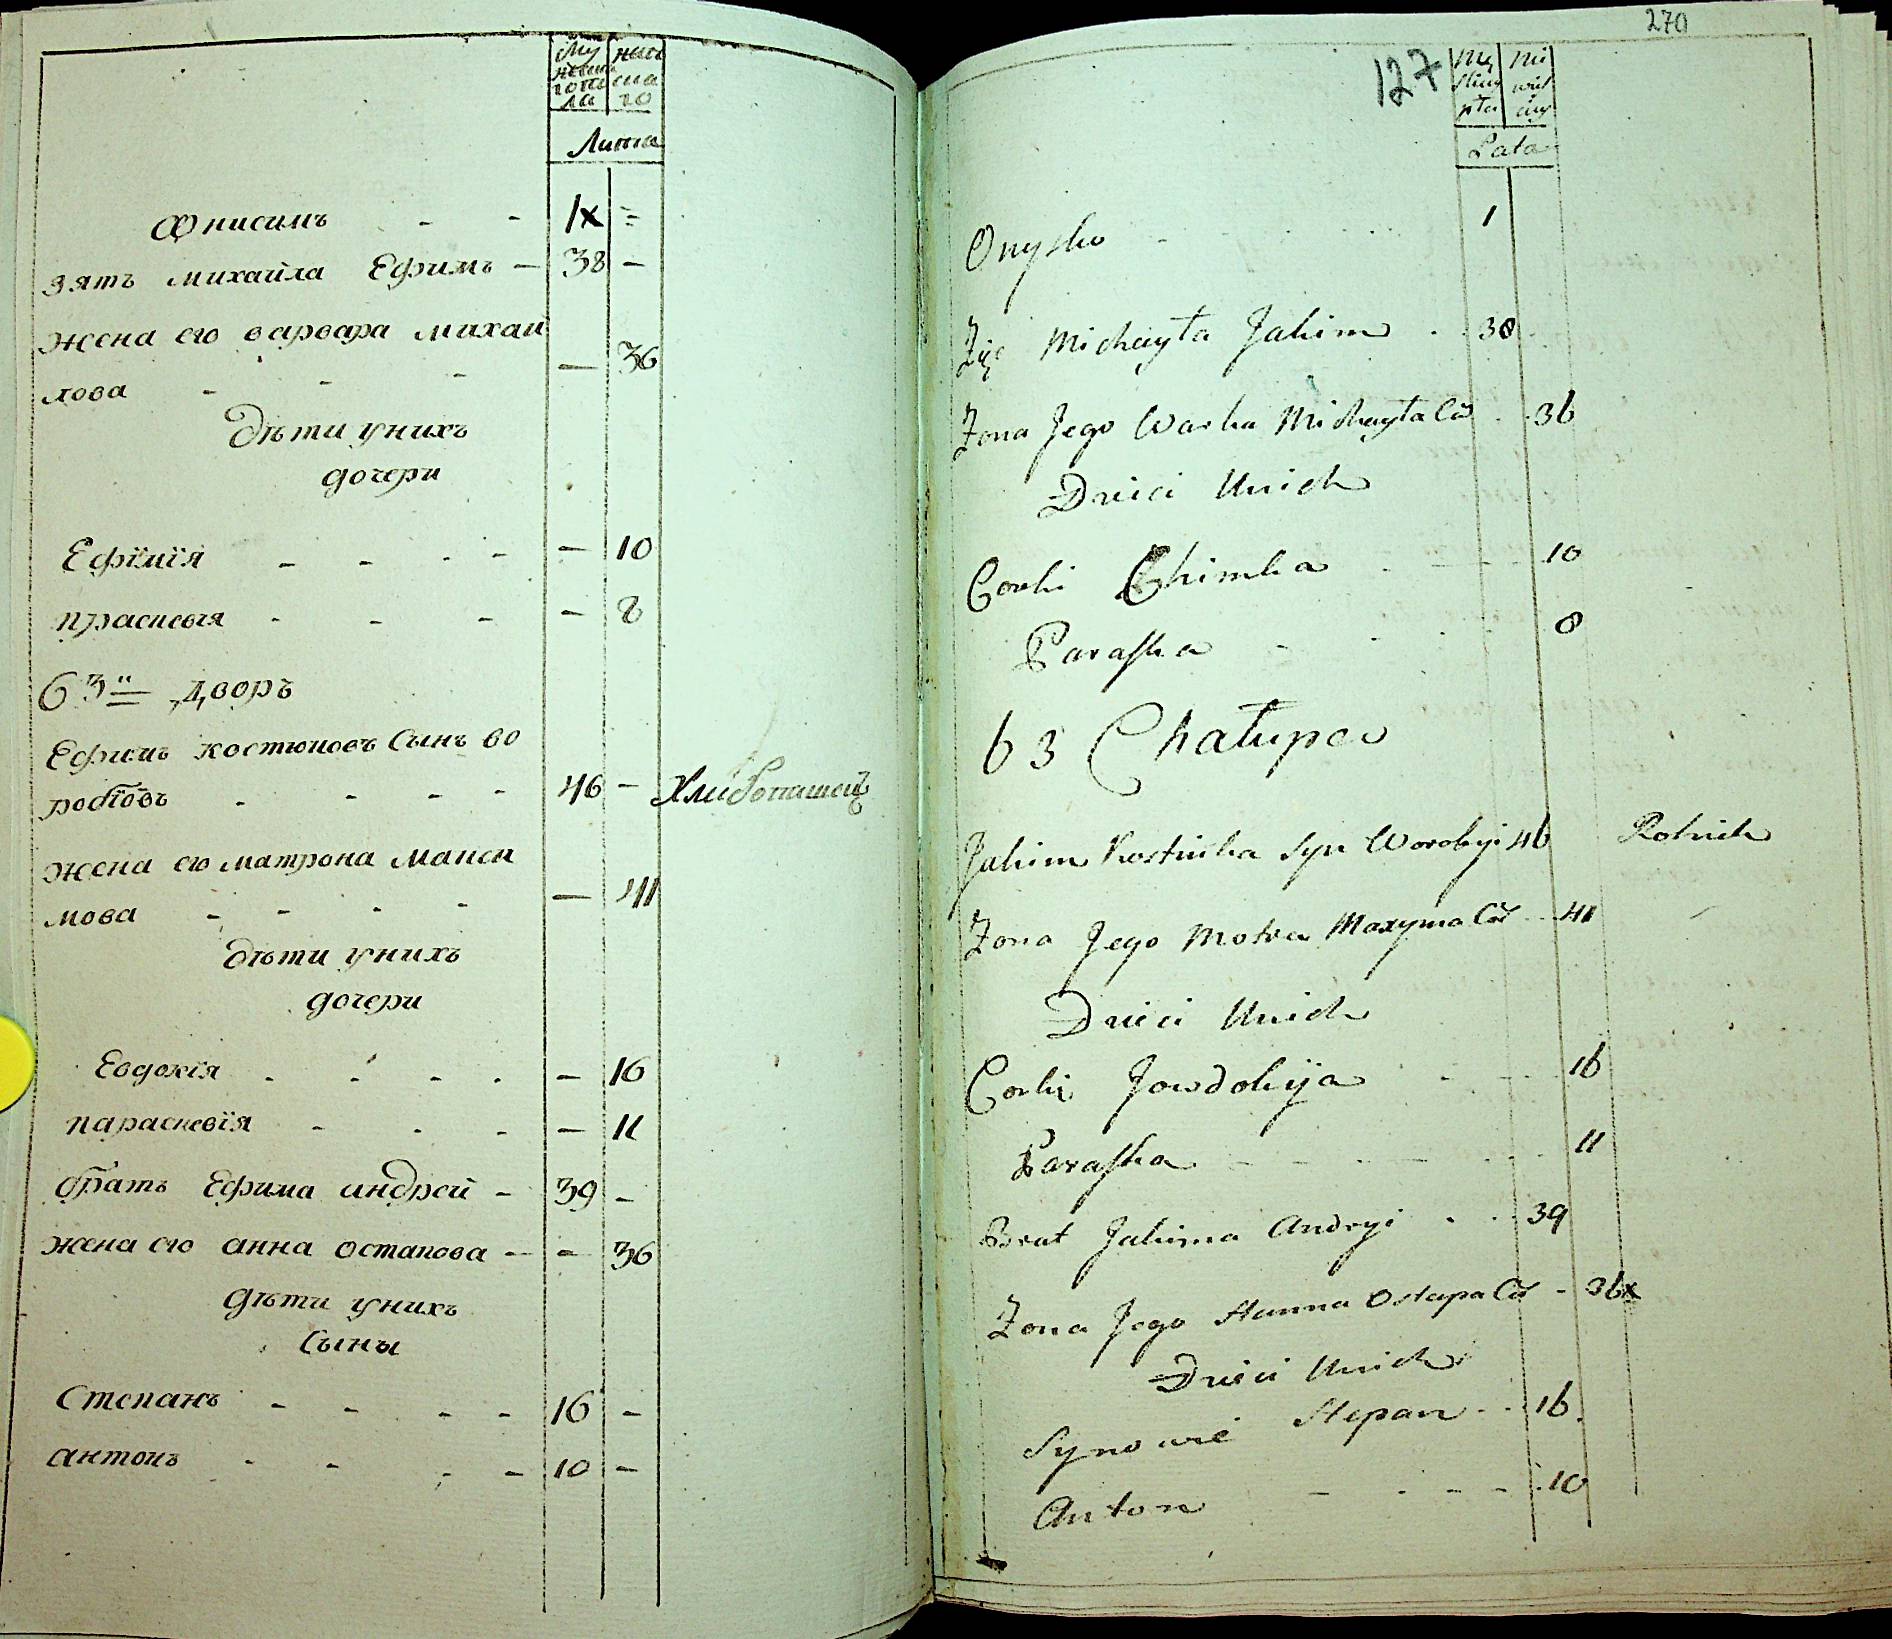 Му жеска
жеска го по
го ла
Лѣта
Ѻнисимъ - - 1x =
зять михайла Ефимъ - 38 -
жена его варвара михаи
лова - - - — 36
дѣти унихъ
дочери
Ефїмїя - - - - — 10
прасковїя - - - — 8
63й дворъ
Ефимъ костюковъ сынъ во
робїовъ - - - - 46 - Хлибопашецъ
жена его матрона макси
мова - - - - — 41
дѣти унихъ
дочери
Евдокїя - - - - — 16
параскевїя - - - — 11
братъ Ефима андрей - 39 -
жена его анна остапова - - 36
дѣти унихъ
сыны
Степанъ - - - - 16 -
антонъ - - - - 10 -
270
127
Lata
Onysko - 1
Zięć Michayła Jakim 38
Zona Jego Warka Michayła Cór 36
Dzieci Unich
Corki Chimka 10
Paraska 8
63 Chałupa
Jakim Kostiuka Syn Worobyi 46 Rolnik
Zona Jego Motra Maxyma Cór 41
Dzieci Unich
Corki Jowdokija 16
Paraska 11
Brat Jakima Andryi 39
Zona Jego Hanna Ostapa Cór - 36x
Dzieci Unich
Synowie Stepan 16
Anton - - - - 10